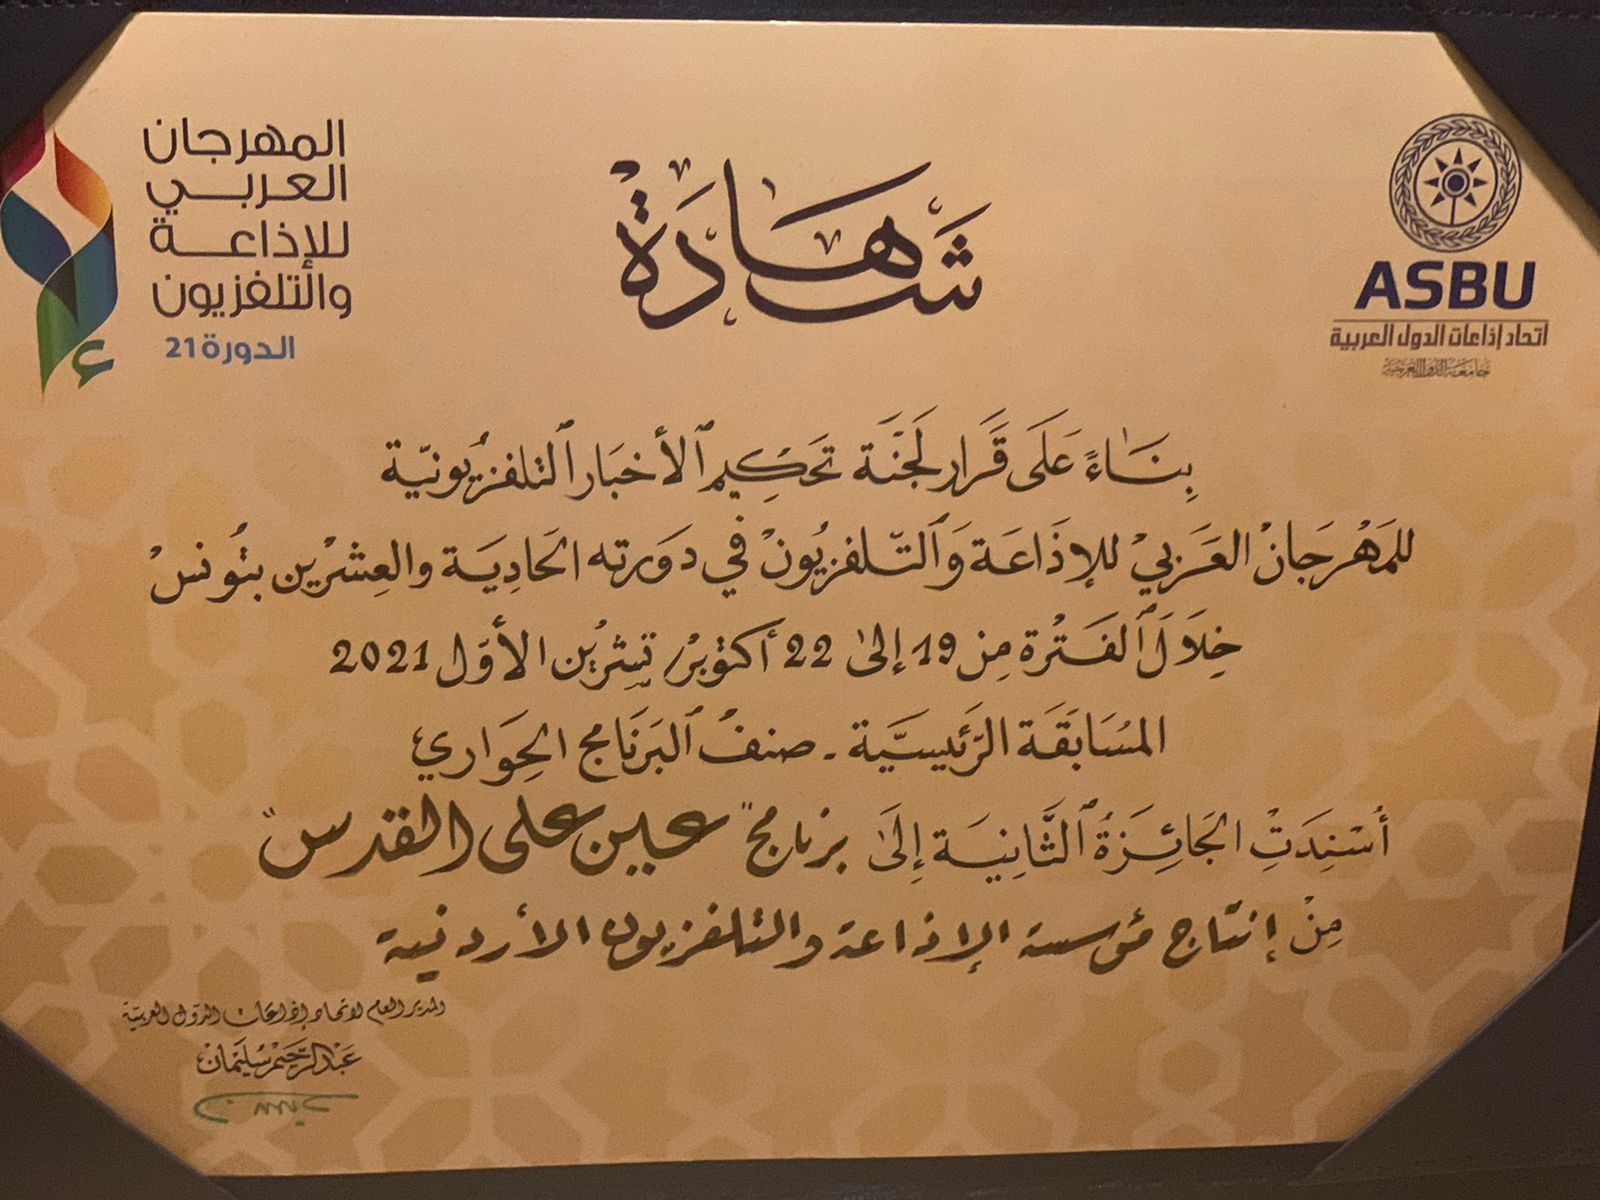 المهرجان
العربي
للإذاعة
والتلفزيون
الدورة 21
شهادة
ASBU
اتحاد إذاعات الدول العربية
جامعة الدول العربية
بِنَاءً عَلَى قَرَار لَجْنَة تَحكِيم ٱلأخبَار ٱلتلفزيُونيّة
للمَهْرَجَانْ العَرَبيْ للإذَاعَة وَٱلتّلفزيُونْ في دَورَته الحَادِيَة والعِشرْين بتُونسْ
خِلَالَ ٱلفَترْة مِن 19 إلىٰ 22 أكتوْبرْ/ تشِريْن الأوّل 2021
المُسَابَقَة الرّئيسيَّة - صنفُ ٱلبَرنَامج الحِوَاري
أسْنِدَتْ الجَائِزَةُ ٱلثَّانِيَة إِلَىٰ برنامج "عين على القدس"
مِنْ إنتاج مؤسسة الإذاعة والتلفزيون الأردنية
المدير العام لاتحاد إذاعات الدّول العربيّة
عَبْد الرَّحِيْم سُليْمَانْ